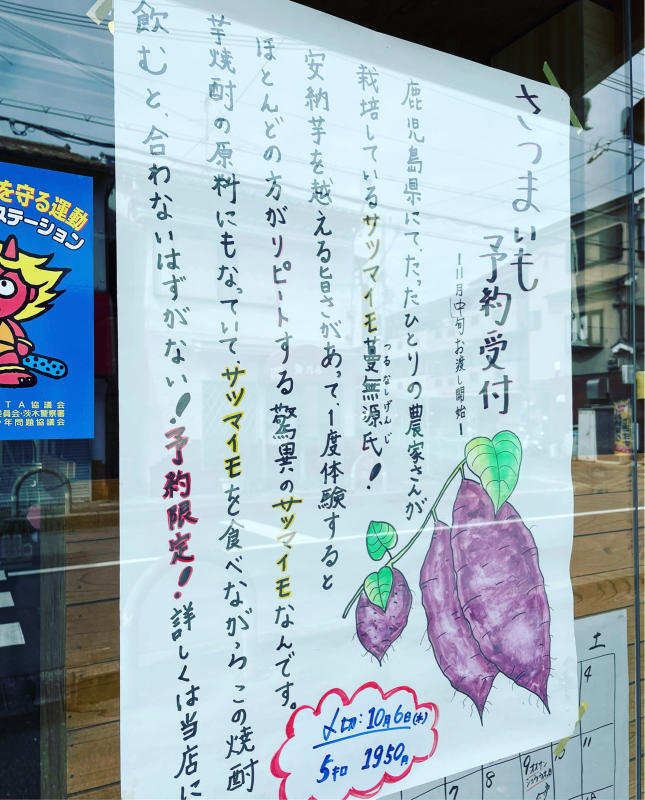 さつまいも
予約受付
ー11月中旬お渡し開始ー
鹿児島県にて、たったひとりの農家さんが
栽培しているサツマイモ蔓無源氏！
つるなしげんじ
安納芋を越える旨さがあって、1度体験すると
ほとんどの方がリピートする驚異のサツマイモなんです。
芋焼酎の原料にもなっていて、サツマイモを食べながらこの焼酎
飲むと、合わないはずがない！予約限定！詳しくは当店に
〆切：10月6日(木)
5キロ 1950円
を守る運動
ステーション
TA協議会
委員会・茨木警察署
年問題協議会
土
4
7
8
9
10
11